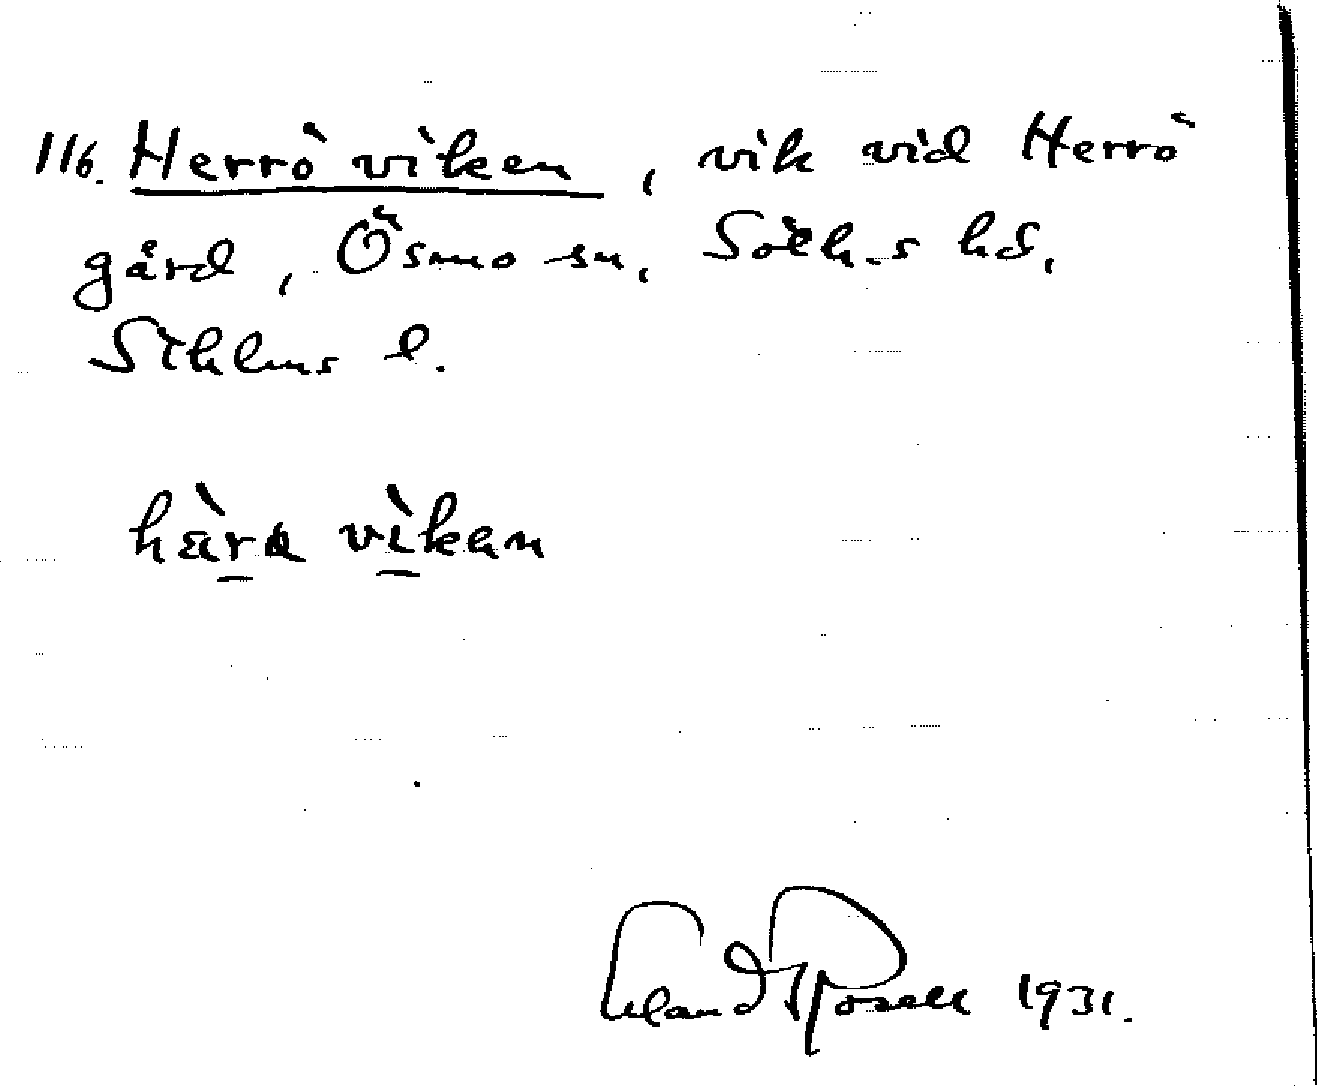 116. Herröviken, vik vid Herrö
gård, Ösmo sn, Soth-s hd,
Sthlms l.
hàra vìkan
Erland Rosell 1931.